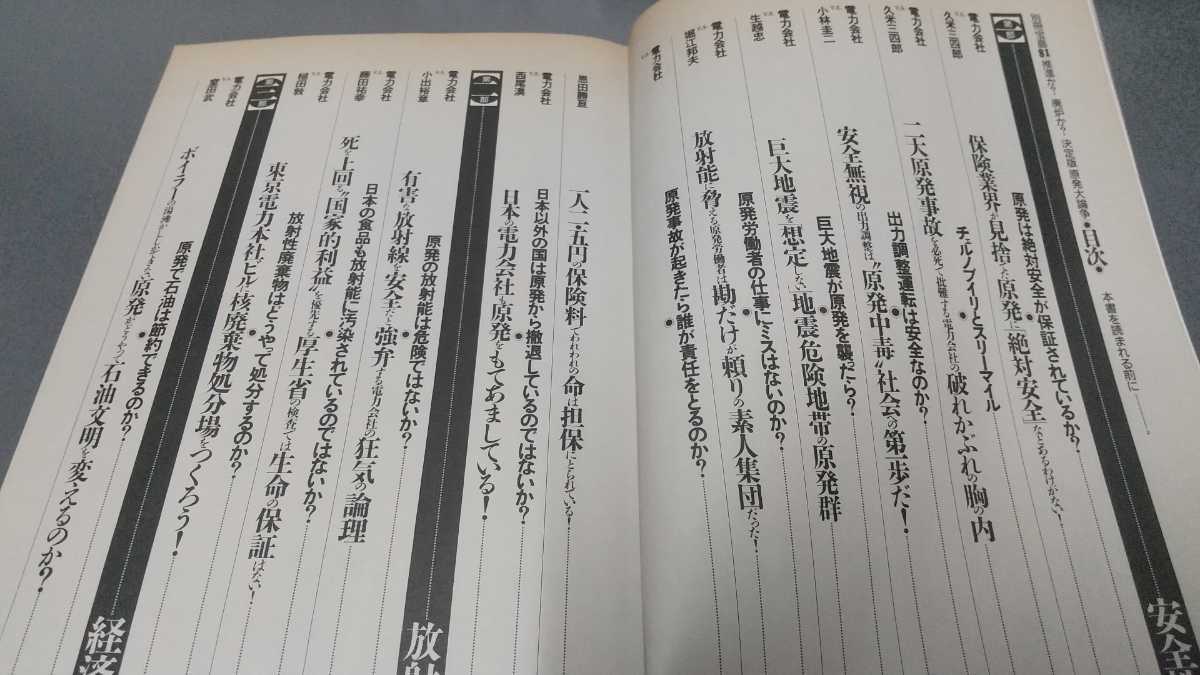 別冊宝島81 推進か？廃炉か？決定版 原発大論争●目次●
本書を読まれる前に
第一部
安全
電力会社
v.s.
久米三四郎
原発は絶対安全が保証されているか？
保険業界が見捨てた原発に「絶対安全」などとあるわけがない！
電力会社
v.s.
久米三四郎
チェルノブイリとスリーマイル
二大原発事故を必死で批難する電力会社の破れかぶれの胸の内
電力会社
v.s.
小林圭二
出力調整運転は安全なのか？
安全無視の出力調整は"原発中毒"社会の第一歩だ！
電力会社
v.s.
生越忠
巨大地震が原発を襲だたら？
巨大地震を「想定しない」地震危険地帯の原発群
電力会社
v.s.
堀江邦夫
原発労働者の仕事にミスはないのか？
放射能に脅える原発労働者は勘だけが頼りの素人集団だった！
電力会社
v.s.
恩田勝亘
原発事故が起きたら誰が責任をとるのか？
一人二・五円の保険料でわれわれの命は担保にとられている！
電力会社
v.s.
西尾漠
日本以外の国は原発から撤退しているのではないか？
日本の電力会社も原発をもてあましている！
第二部
放射
電力会社
v.s.
小出裕章
原発の放射能は危険ではないか？
有害な放射線を安全だと強弁する電力会社の狂気の論理
電力会社
v.s.
藤田祐幸
日本の食品も放射能に汚染されているのではないか？
死を上回る"国家的利益"を優先する厚生省の検査では生命の保証はない！
電力会社
v.s.
槌田敦
放射性廃棄物はどうやって処分するのか？
東京電力本社ビルに核廃棄物処分場をつくろう！
第三部
経済
電力会社
v.s.
室田武
原発で石油は節約できるのか？
ボイラーの湯沸かししかできない原発がどうやって石油文明を変えるのか？